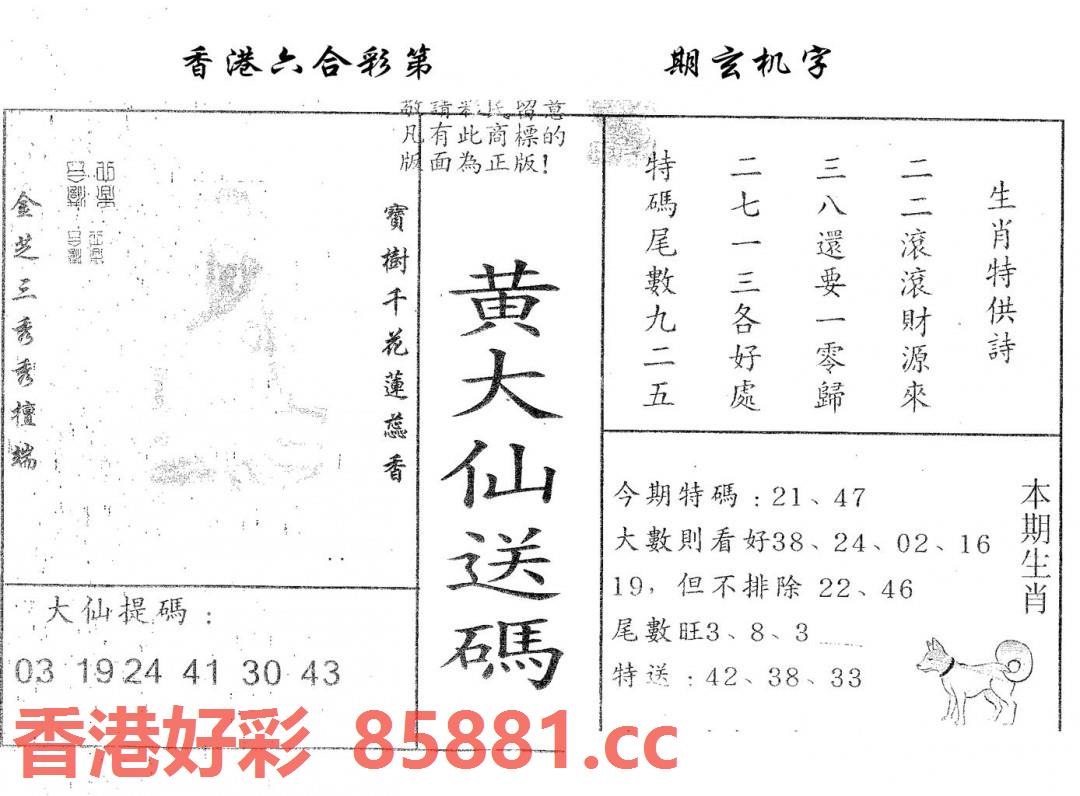 香港六合彩第 期玄机字
敬請彩民留意
凡有此商標的
版面為正版!
生肖特供詩
二二滾滾財源來
三八還要一零歸
二七一三各好處
特碼尾數九二五
寶樹千花蓮蕊香
金芝三秀秀檀端
黄大仙送碼
今期特碼:21、47
大數則看好38、24、02、16
19,但不排除 22、46
尾數旺3、8、3
特送:42、38、33
本期生肖
大仙提碼:
03 19 24 41 30 43
香港好彩 85881.cc